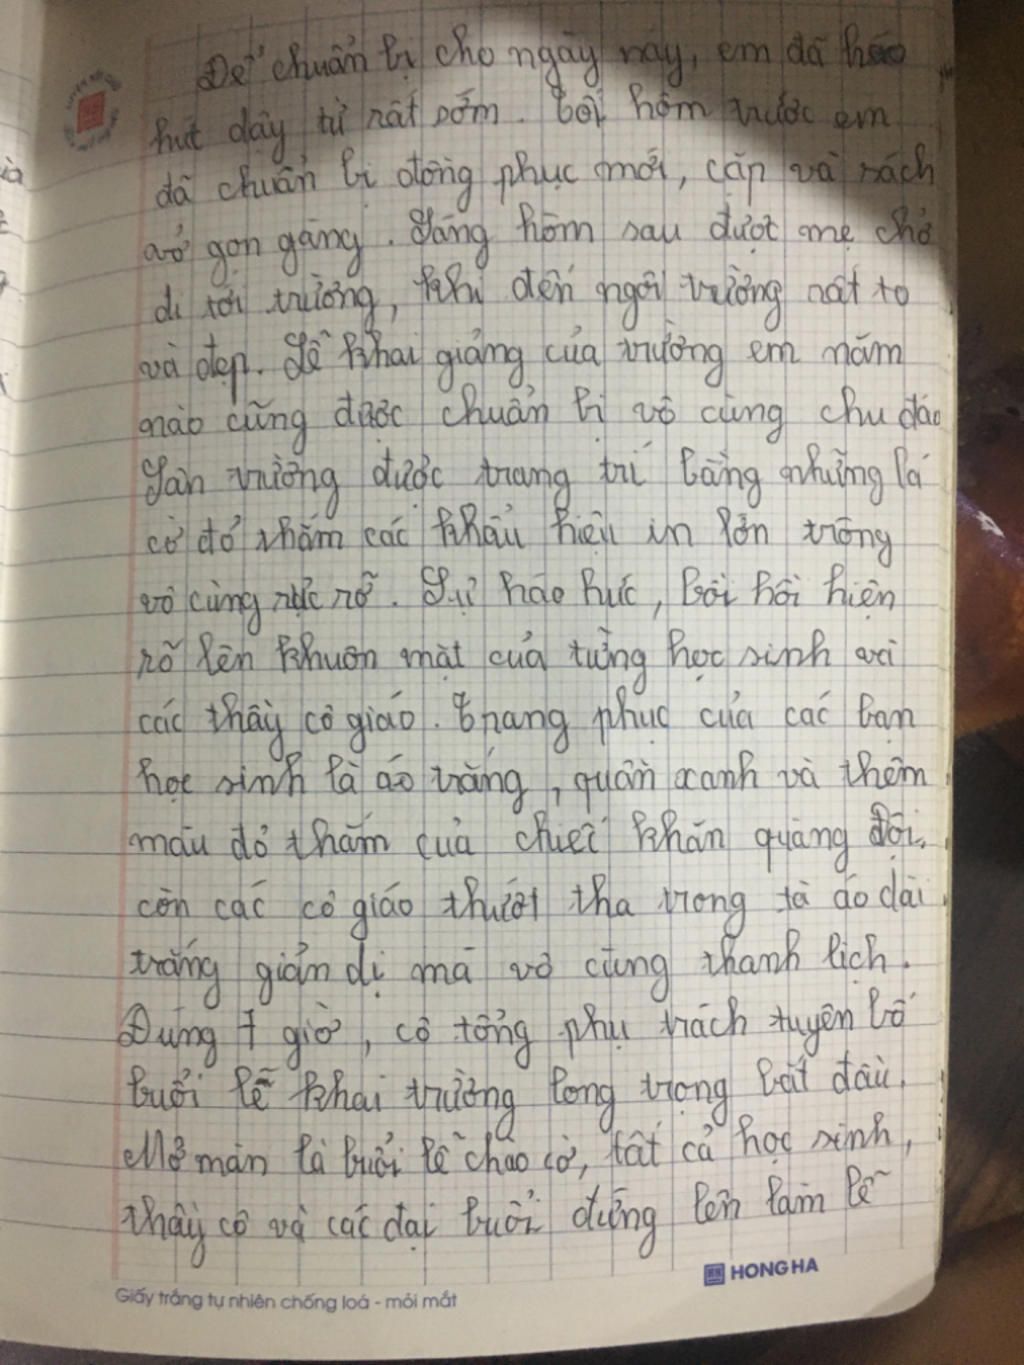 Để chuẩn bị cho ngày này, em đã háo
hức dậy từ rất sớm. Tối hôm trước em
đã chuẩn bị đồng phục mới, cặp và sách
vở gọn gàng. Sáng hôm sau được mẹ chở
đi tới trường, khi đến ngôi trường rất to
và đẹp. Lễ khai giảng của trường em năm
nào cũng được chuẩn bị vô cùng chu đáo
Sân trường được trang trí bằng những lá
cờ đỏ thắm các khẩu hiệu in lớn trông
vô cùng rực rỡ. Sự háo hức, bồi hồi hiện
rõ lên khuôn mặt của từng học sinh và
các thầy cô giáo. Trang phục của các bạn
học sinh là áo trắng, quần xanh và thêm
màu đỏ thắm của chiếc khăn quàng đội,
còn các cô giáo thướt tha trong tà áo dài
trắng giản dị mà vô cùng thanh lịch.
Đúng 7 giờ, cô tổng phụ trách tuyên bố
buổi lễ khai trường long trọng bắt đầu.
Mở màn là buổi lễ chào cờ, tất cả học sinh,
thầy cô và các đại buổi đứng lên làm lễ
HONG HA
Giấy trắng tự nhiên chống loá - mỏi mắt